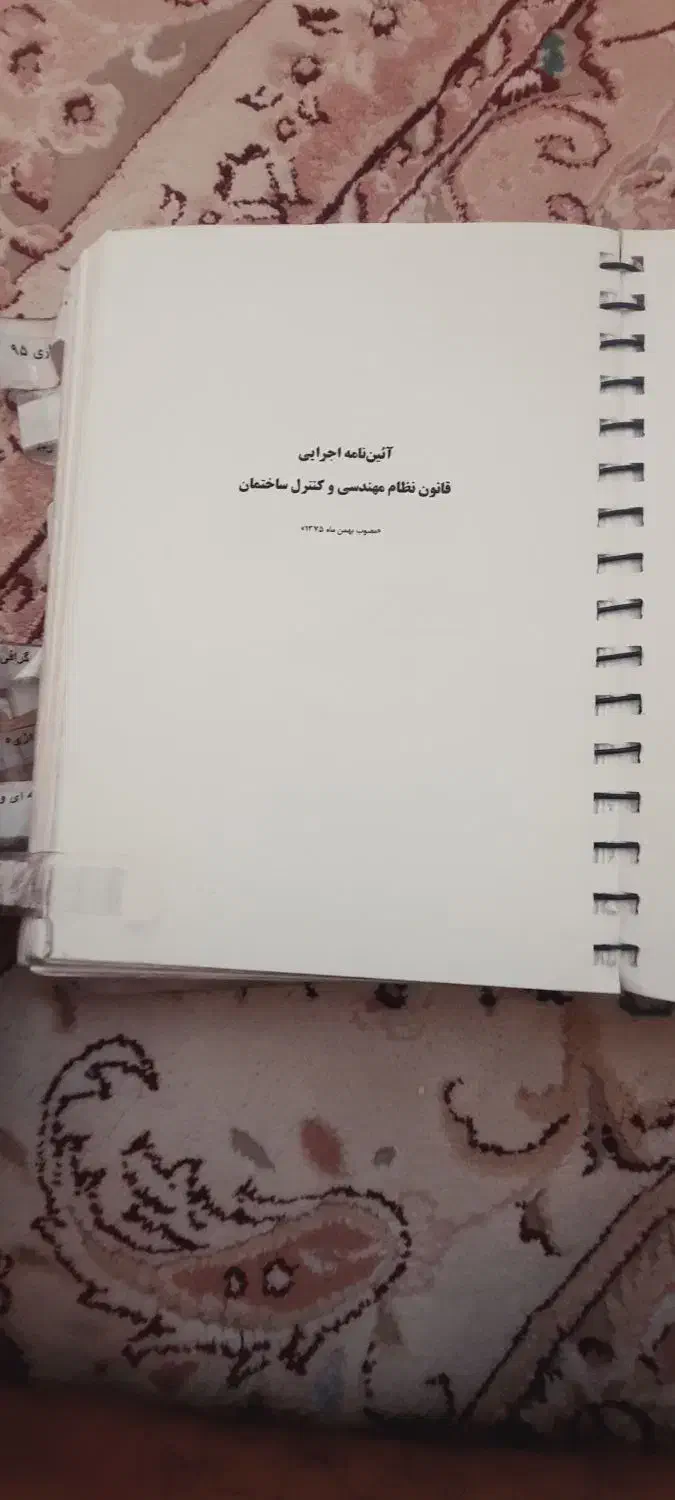 آئین‌نامه اجرایی
قانون نظام مهندسی و کنترل ساختمان
«مصوب بهمن ماه ۱۳۷۵»
۹۵
ای و